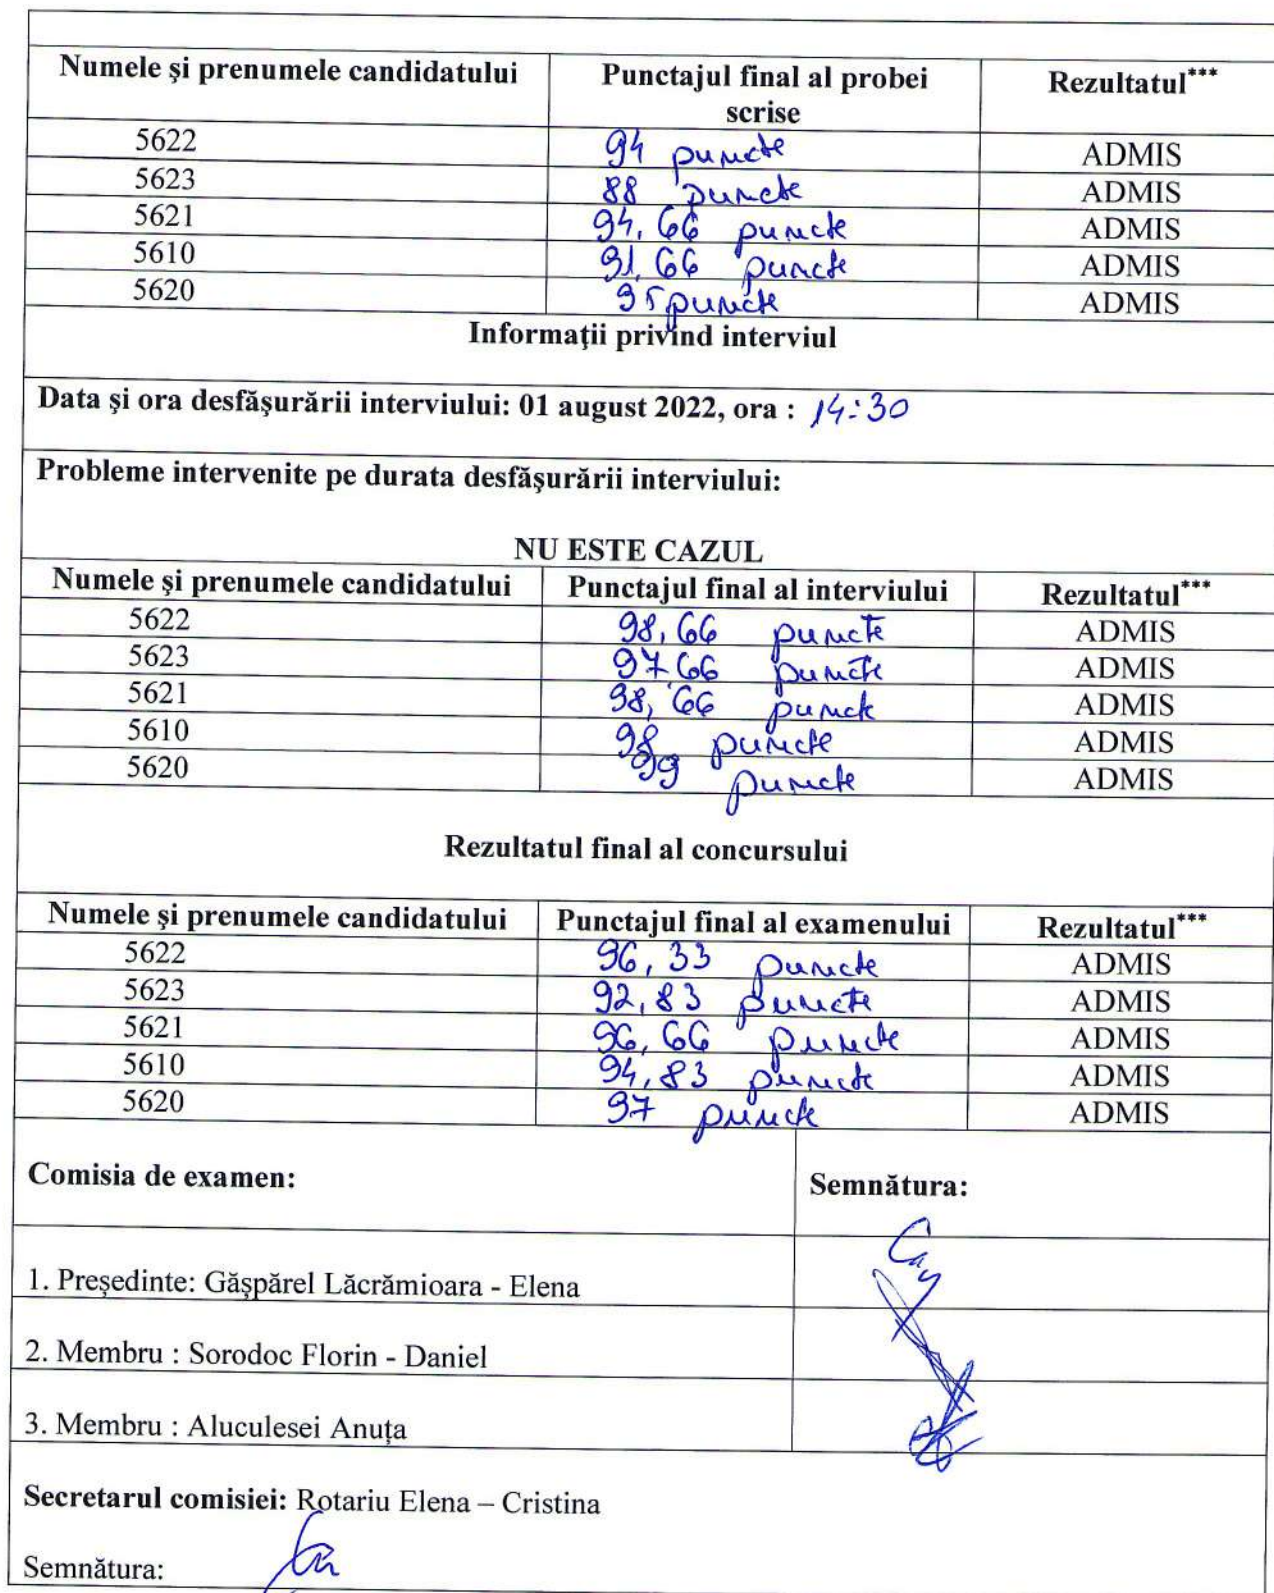 Numele şi prenumele candidatului Punctajul final al probei scrise Rezultatul***
5622 94 puncte ADMIS
5623 88 puncte ADMIS
5621 94,66 puncte ADMIS
5610 91,66 puncte ADMIS
5620 95 puncte ADMIS
Informaţii privind interviul
Data şi ora desfăşurării interviului: 01 august 2022, ora : 14:30
Probleme intervenite pe durata desfăşurării interviului:
NU ESTE CAZUL
Numele şi prenumele candidatului Punctajul final al interviului Rezultatul***
5622 98,66 puncte ADMIS
5623 97,66 puncte ADMIS
5621 98,66 puncte ADMIS
5610 98 puncte ADMIS
5620 99 puncte ADMIS
Rezultatul final al concursului
Numele şi prenumele candidatului Punctajul final al examenului Rezultatul***
5622 96,33 puncte ADMIS
5623 92,83 puncte ADMIS
5621 96,66 puncte ADMIS
5610 94,83 puncte ADMIS
5620 97 puncte ADMIS
Comisia de examen: Semnătura:
1. Preşedinte: Găşpărel Lăcrămioara - Elena
2. Membru : Sorodoc Florin - Daniel
3. Membru : Aluculesei Anuţa
Secretarul comisiei: Rotariu Elena – Cristina
Semnătura: